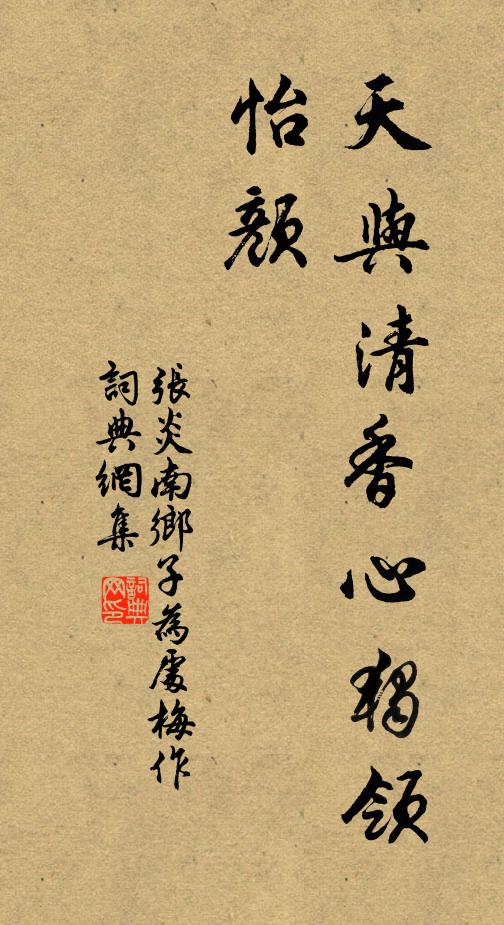 天與清香心獨領
怡顏
張炎南鄉子為處梅作
詞典網集
詞典
网印